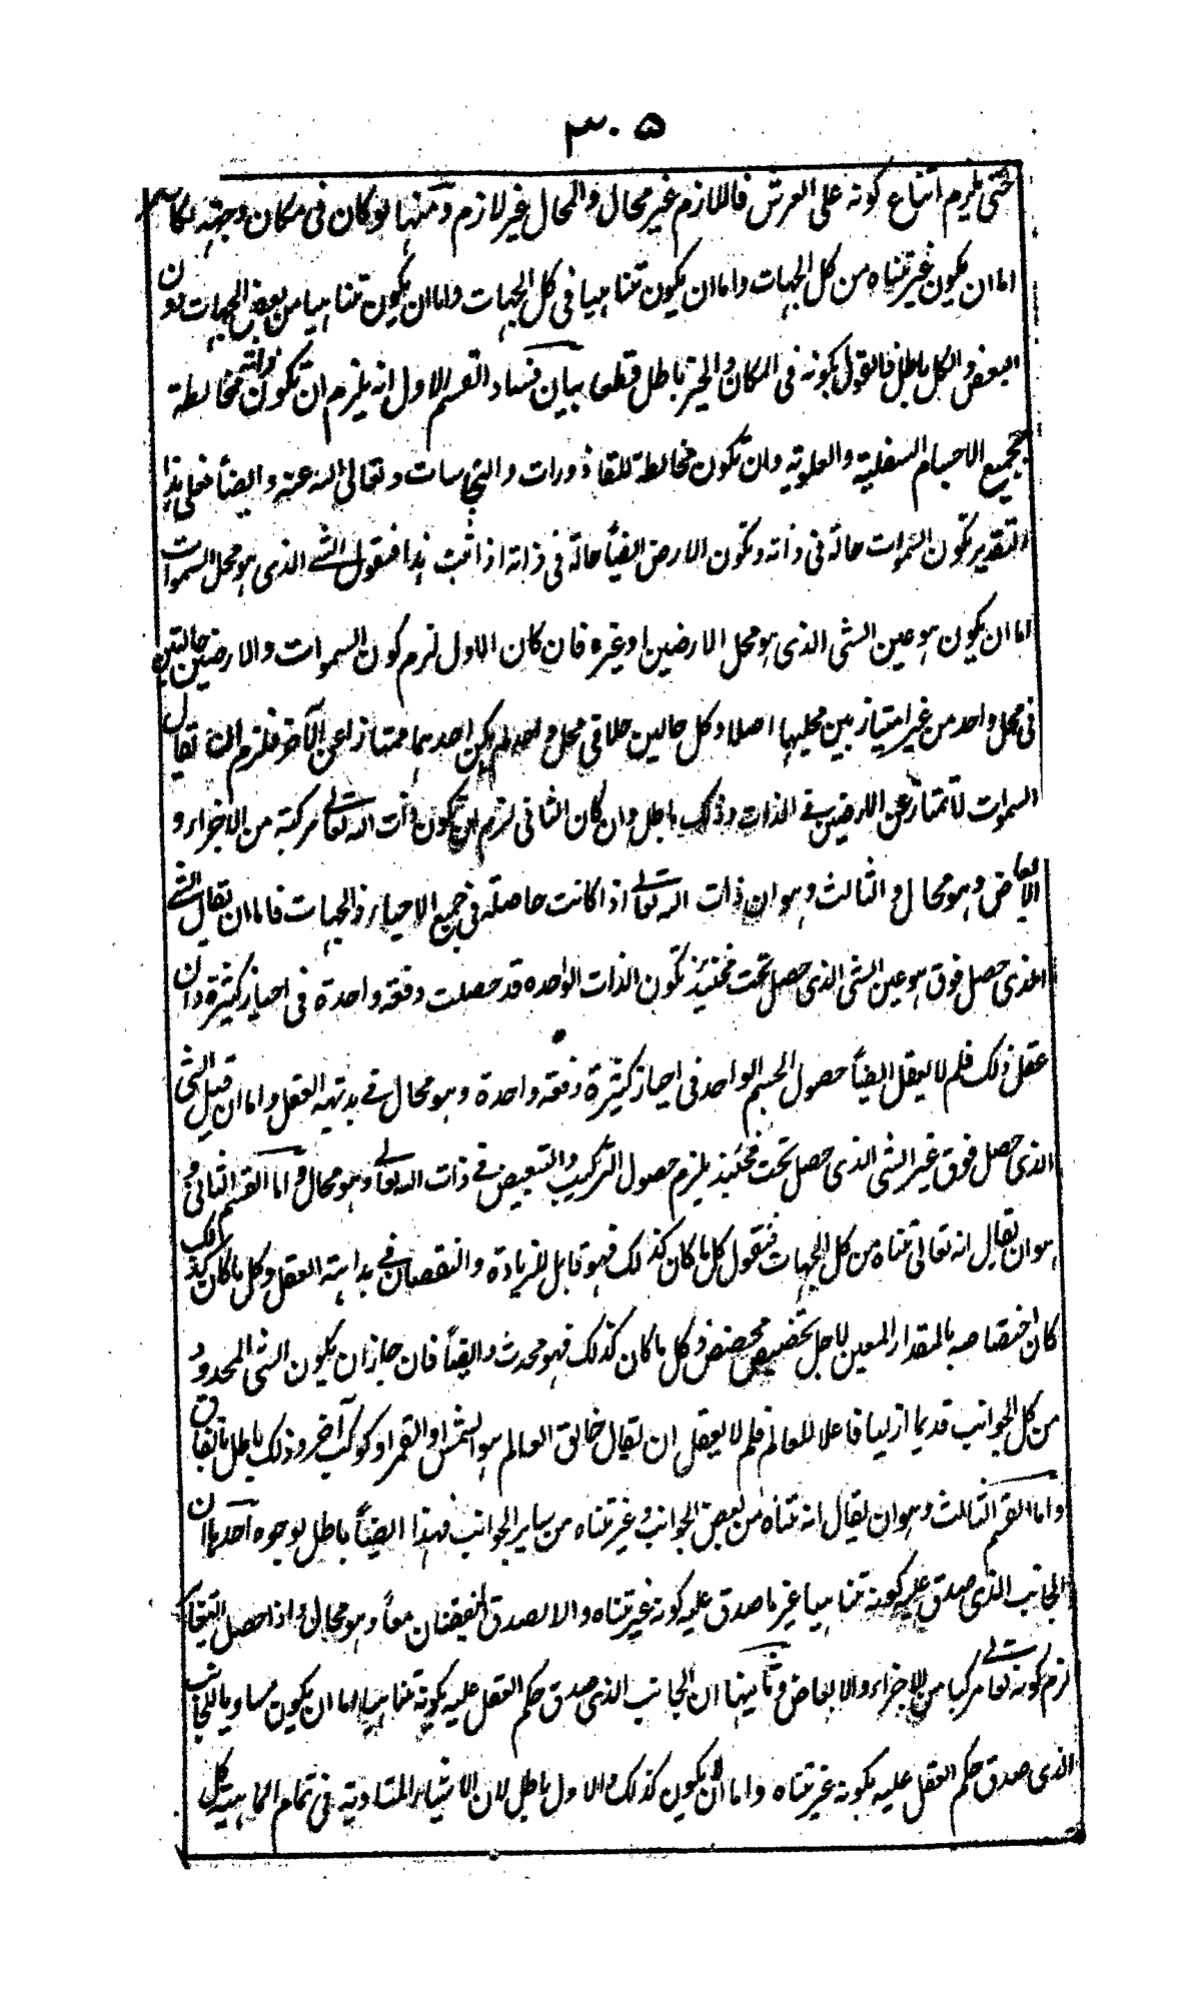 ٣٠٥
حتى يلزم امتناع كونه على العرش فاللازم غير محال والمحال غير لازم ومنها لو كان فى مكان وجهة لكان
اما ان يكون غير متناه من كل الجهات واما ان يكون متناهيا فى كل الجهات واما ان يكون متناهيا من بعض الجهات دون
البعض والكل باطل فالقول بكونه فى المكان والحيز باطل قطعا بيان فساد القسم الاول انه يلزم ان تكون ذاته مخالطة
بجميع الاجسام السفلية والعلوية وان تكون مخالطة للقاذورات والنجاسات وتعالى الله عنه وايضاً فعلى هذا
التقدير تكون السموات حالة فى ذاته وتكون الارض ايضاً حالة فى ذاته اذا ثبت هذا فنقول الشئ الذى هو محل السموات
اما ان يكون هو عين الشئ الذى هو محل الارضين او غيره فان كان الاول لزم كون السموات والارضين حالتين
فى محل واحد من غير امتياز بين محليهما اصلا وكل حالين حلا فى محل واحد لم يكن احدهما ممتازا عن الآخر فلزم ان يقال
السموات لا تمتاز عن الارضين فى الذات وذلك باطل وان كان الثانى لزم ان تكون ذات الله تعالى مركبة من الاجزاء و
الابعاض وهو محال والثالث وهو ان ذات الله تعالى اذا كانت حاصلة فى جميع الاحياز والجهات فاما ان يقال الشئ
الذى حصل فوق هو عين الشئ الذى حصل تحت فحينئذ تكون الذات الواحدة قد حصلت دفعة واحدة فى احياز كثيرة وان
عقل ذلك فلم لا يعقل ايضاً حصول الجسم الواحد فى احياز كثيرة دفعة واحدة وهو محال فى بديهة العقل واما ان قيل الشئ
الذى حصل فوق غير الشئ الذى حصل تحت فحينئذ يلزم حصول التركيب والتبعيض فى ذات الله تعالى وهو محال واما القسم الثانى و
هو ان يقال انه تعالى متناه من كل الجهات فنقول كل ما كان كذلك فهو قابل للزيادة والنقصان فى بداهة العقل وكل ما كان كذلك
كان اختصاصه بالمقدار المعين لاجل تخصيص مخصص وكل ما كان كذلك فهو محدث وايضاً فان جاز ان يكون الشئ المحدود
من كل الجوانب قديما ازليا فاعلا للعالم فلم لا يعقل ان يقال خالق العالم هو الشمس او القمر او كوكب آخر وذلك باطل باتفاق
واما القسم الثالث وهو ان يقال انه متناه من بعض الجوانب وغير متناه من ساير الجوانب فهذا ايضاً باطل لوجوه احدها ان
الجانب الذى صدق عليه كونه متناهيا غير ما صدق عليه كونه غير متناه والا لصدق النقيضان معاً وهو محال واذا حصل التغاير
لزم كونه تعالى مركبا من الاجزاء والابعاض وثانيها ان الجانب الذى صدق حكم العقل عليه بكونه متناهيا اما ان يكون مساويا للجانب
الذى صدق حكم العقل عليه بكونه غير متناه واما ان لا يكون كذلك والاول باطل لان الاشياء المتساوية فى تمام الماهية كل